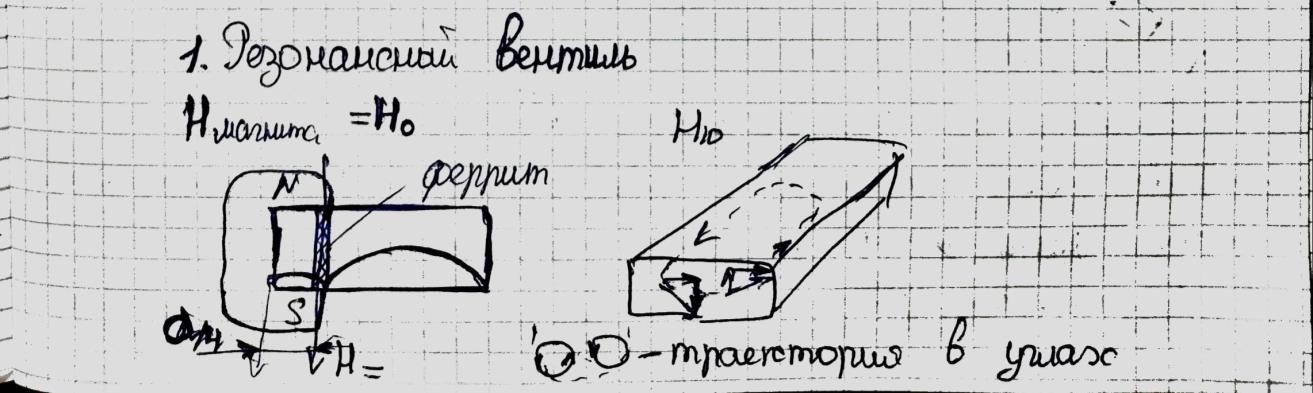 1. Резонансный вентиль
Hмагнита =H₀
H₁₀
феррит
N
S
H=
- траектория в углах